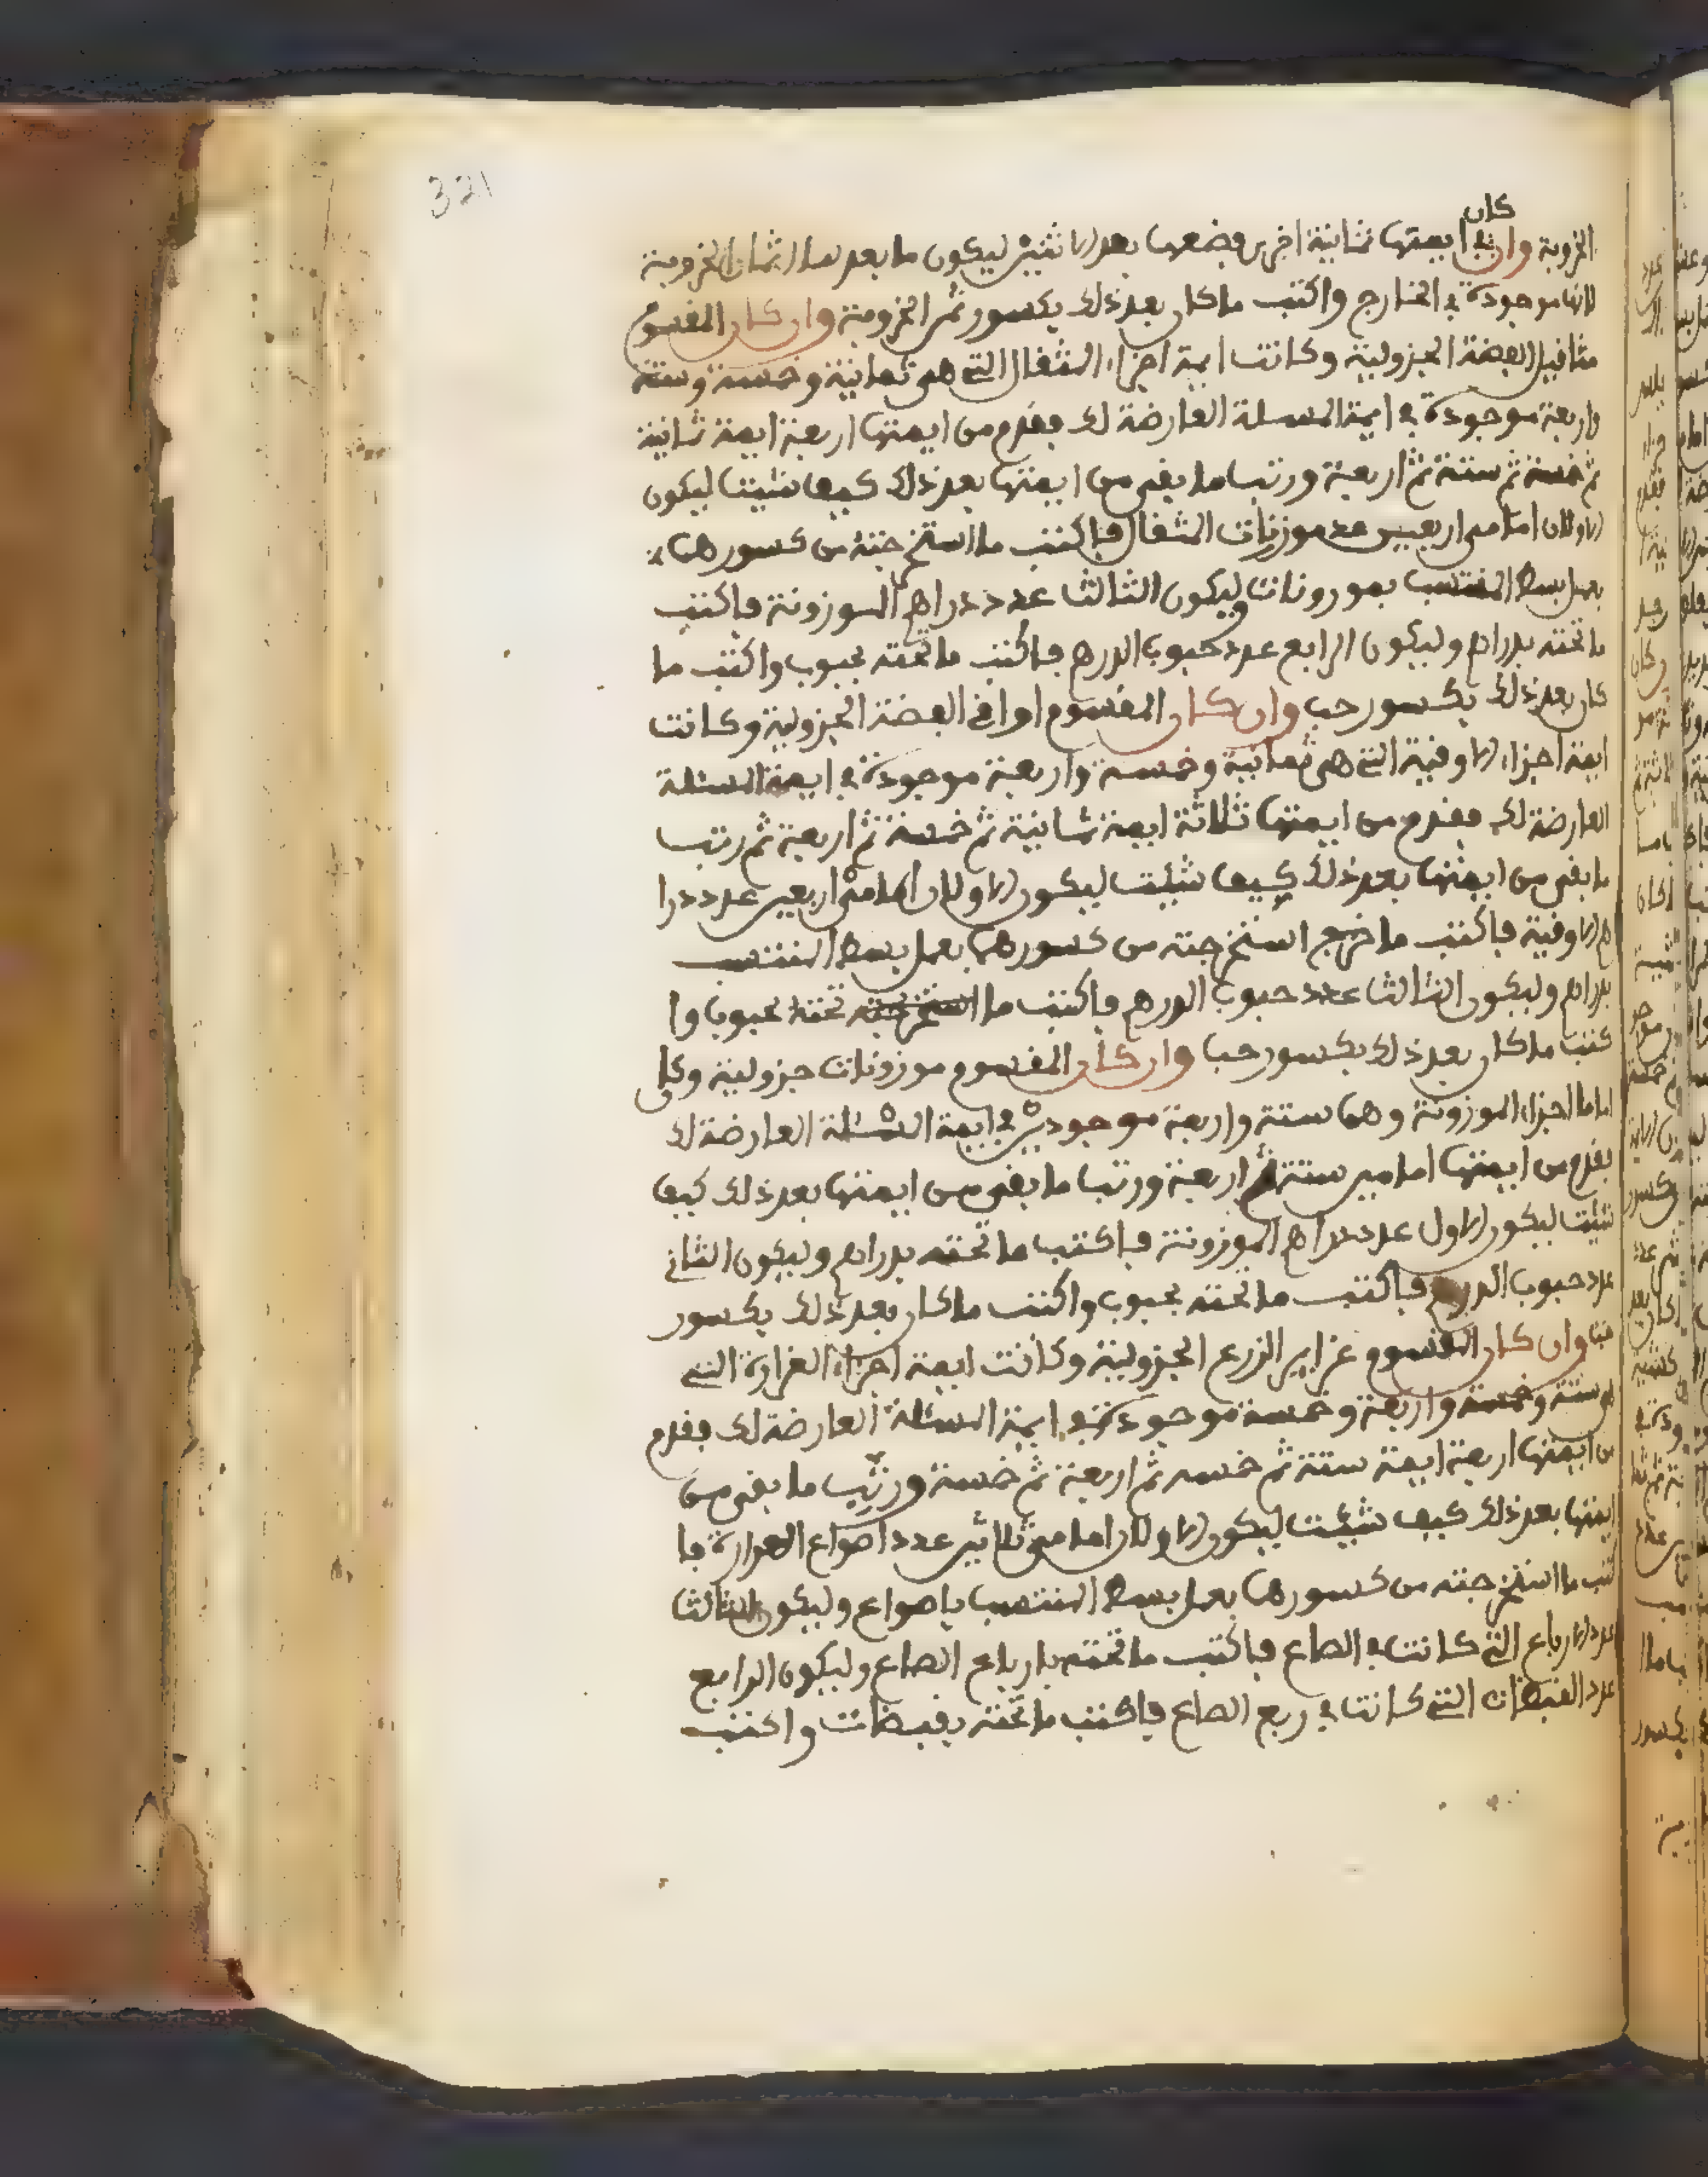 321
كان
الخروبة وان في ايمتها ثمانية اخرى فضعها بعد الاثنين ليكون ما بعدها اثمان الخروبة
لانها موجودة في الخارج واكتب ما كان بعد ذلك بكسور ثمن الخروبة وان كان المقسوم
مثاقيل الفضة الجزولية وكانت ايمة اجزاء المثقال التي هي ثمانية وخمسة وستة
واربعة موجودة في ايمة المسئلة العارضة لك فقدم من ايمتها اربعة ايمة ثمانية
ثم خمسة ثم ستة ثم اربعة ورتب ما بقي من ايمتها بعد ذلك كيف شئت ليكون
الاولان امامي اربعين عدد موزونات المثقال فاكتب ما استخرجته من كسورهما
بعمل بسط المنتسب بموزونات وليكون الثالث عدد دراهم الموزونة فاكتب
ما تحته بدراهم وليكون الرابع عدد حبوب الدرهم فاكتب ما تحته بحبوب واكتب ما
كان بعد ذلك بكسور حب وان كان المقسوم اواقي الفضة الجزولية وكانت
ايمة اجزاء الاوقية التي هي ثمانية وخمسة واربعة موجودة في ايمة المسئلة
العارضة لك فقدم من ايمتها ثلاثة ايمة ثمانية ثم خمسة ثم اربعة ثم رتب
ما بقي من ايمتها بعد ذلك كيف شئت ليكون الاولان امامي اربعين عدد درا
هم الاوقية فاكتب ما خرج استخرجته من كسورهما بعمل بسط المنتسب
بدراهم وليكون الثالث عدد حبوب الدرهم فاكتب ما استخرجته تحته بحبوب وا
كتب ما كان بعد ذلك بكسور حب وان كان المقسوم موزونات جزولية وكان
اماما اجزاء الموزونة وهما ستة واربعة موجودين في ايمة المسئلة العارضة لك
فقدم من ايمتها امامين ستة ثم اربعة ورتب ما بقي من ايمتها بعد ذلك كيف
شئت ليكون الاول عدد دراهم الموزونة فاكتب ما تحته بدراهم وليكون الثاني
عدد حبوب الدرهم فاكتب ما تحته بحبوب واكتب ما كان بعد ذلك بكسور
حب وان كان المقسوم غراير الزرع الجزولية وكانت ايمة اجزاء الغرارة التي
هي ستة وخمسة واربعة وخمسة موجودة في ايمة المسئلة العارضة لك فقدم
من ايمتها اربعة ايمة ستة ثم خمسة ثم اربعة ثم خمسة ورتب ما بقي من
ايمتها بعد ذلك كيف شئت ليكون الاولان امامي ثلاثين عدد اصواع الغرارة فا
كتب ما استخرجته من كسورهما بعمل بسط المنتسب باصواع وليكون الثالث
عدد الارباع التي كانت في الصاع فاكتب ما تحته بارباع الصاع وليكون الرابع
عدد القبضات التي كانت في ربع الصاع فاكتب ما تحته بقبضات واكتب